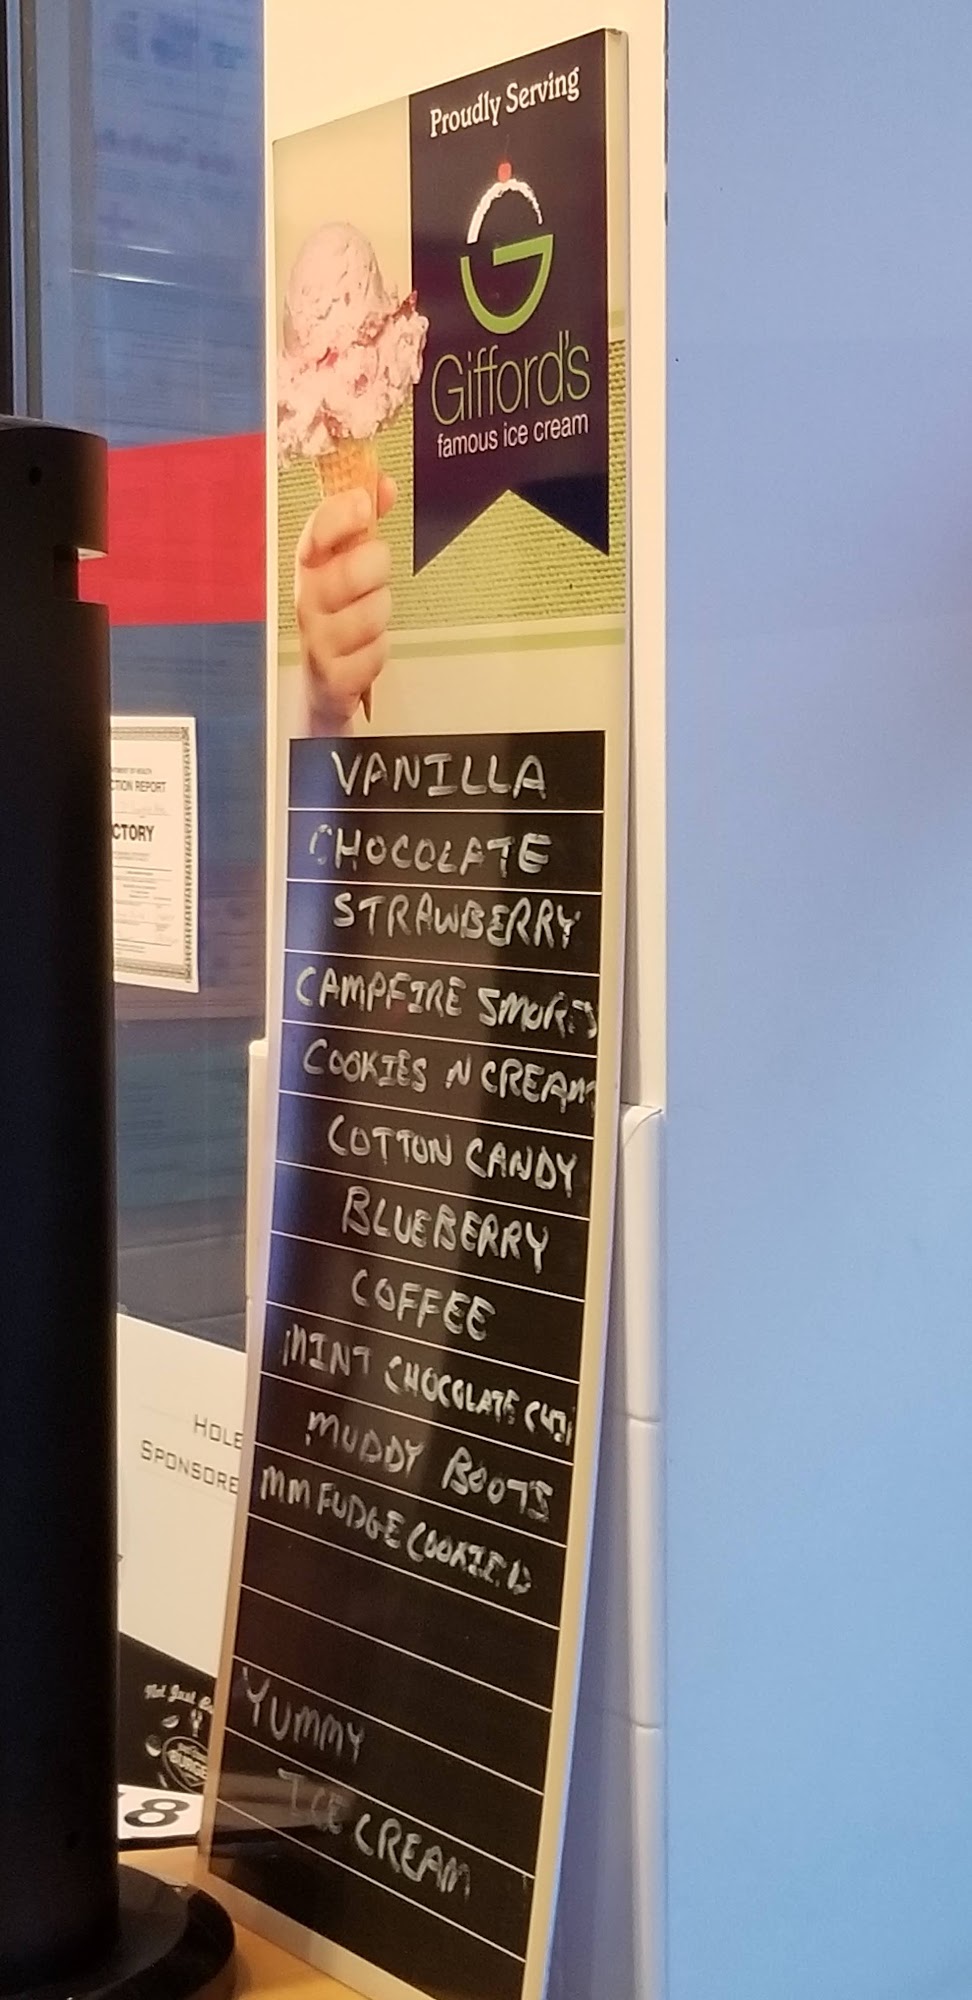 Proudly Serving
Gifford's
famous ice cream
VANILLA
CHOCOLATE
STRAWBERRY
CAMPFIRE SMORES
COOKIES N CREAM
COTTON CANDY
BLUEBERRY
COFFEE
MINT CHOCOLATE
MUDDY BOOTS
MM FUDGE COOKIE D
YUMMY
ICE CREAM
CTION REPORT
CTORY
HOLE
SPONSORE
Not Just
BURGE
8